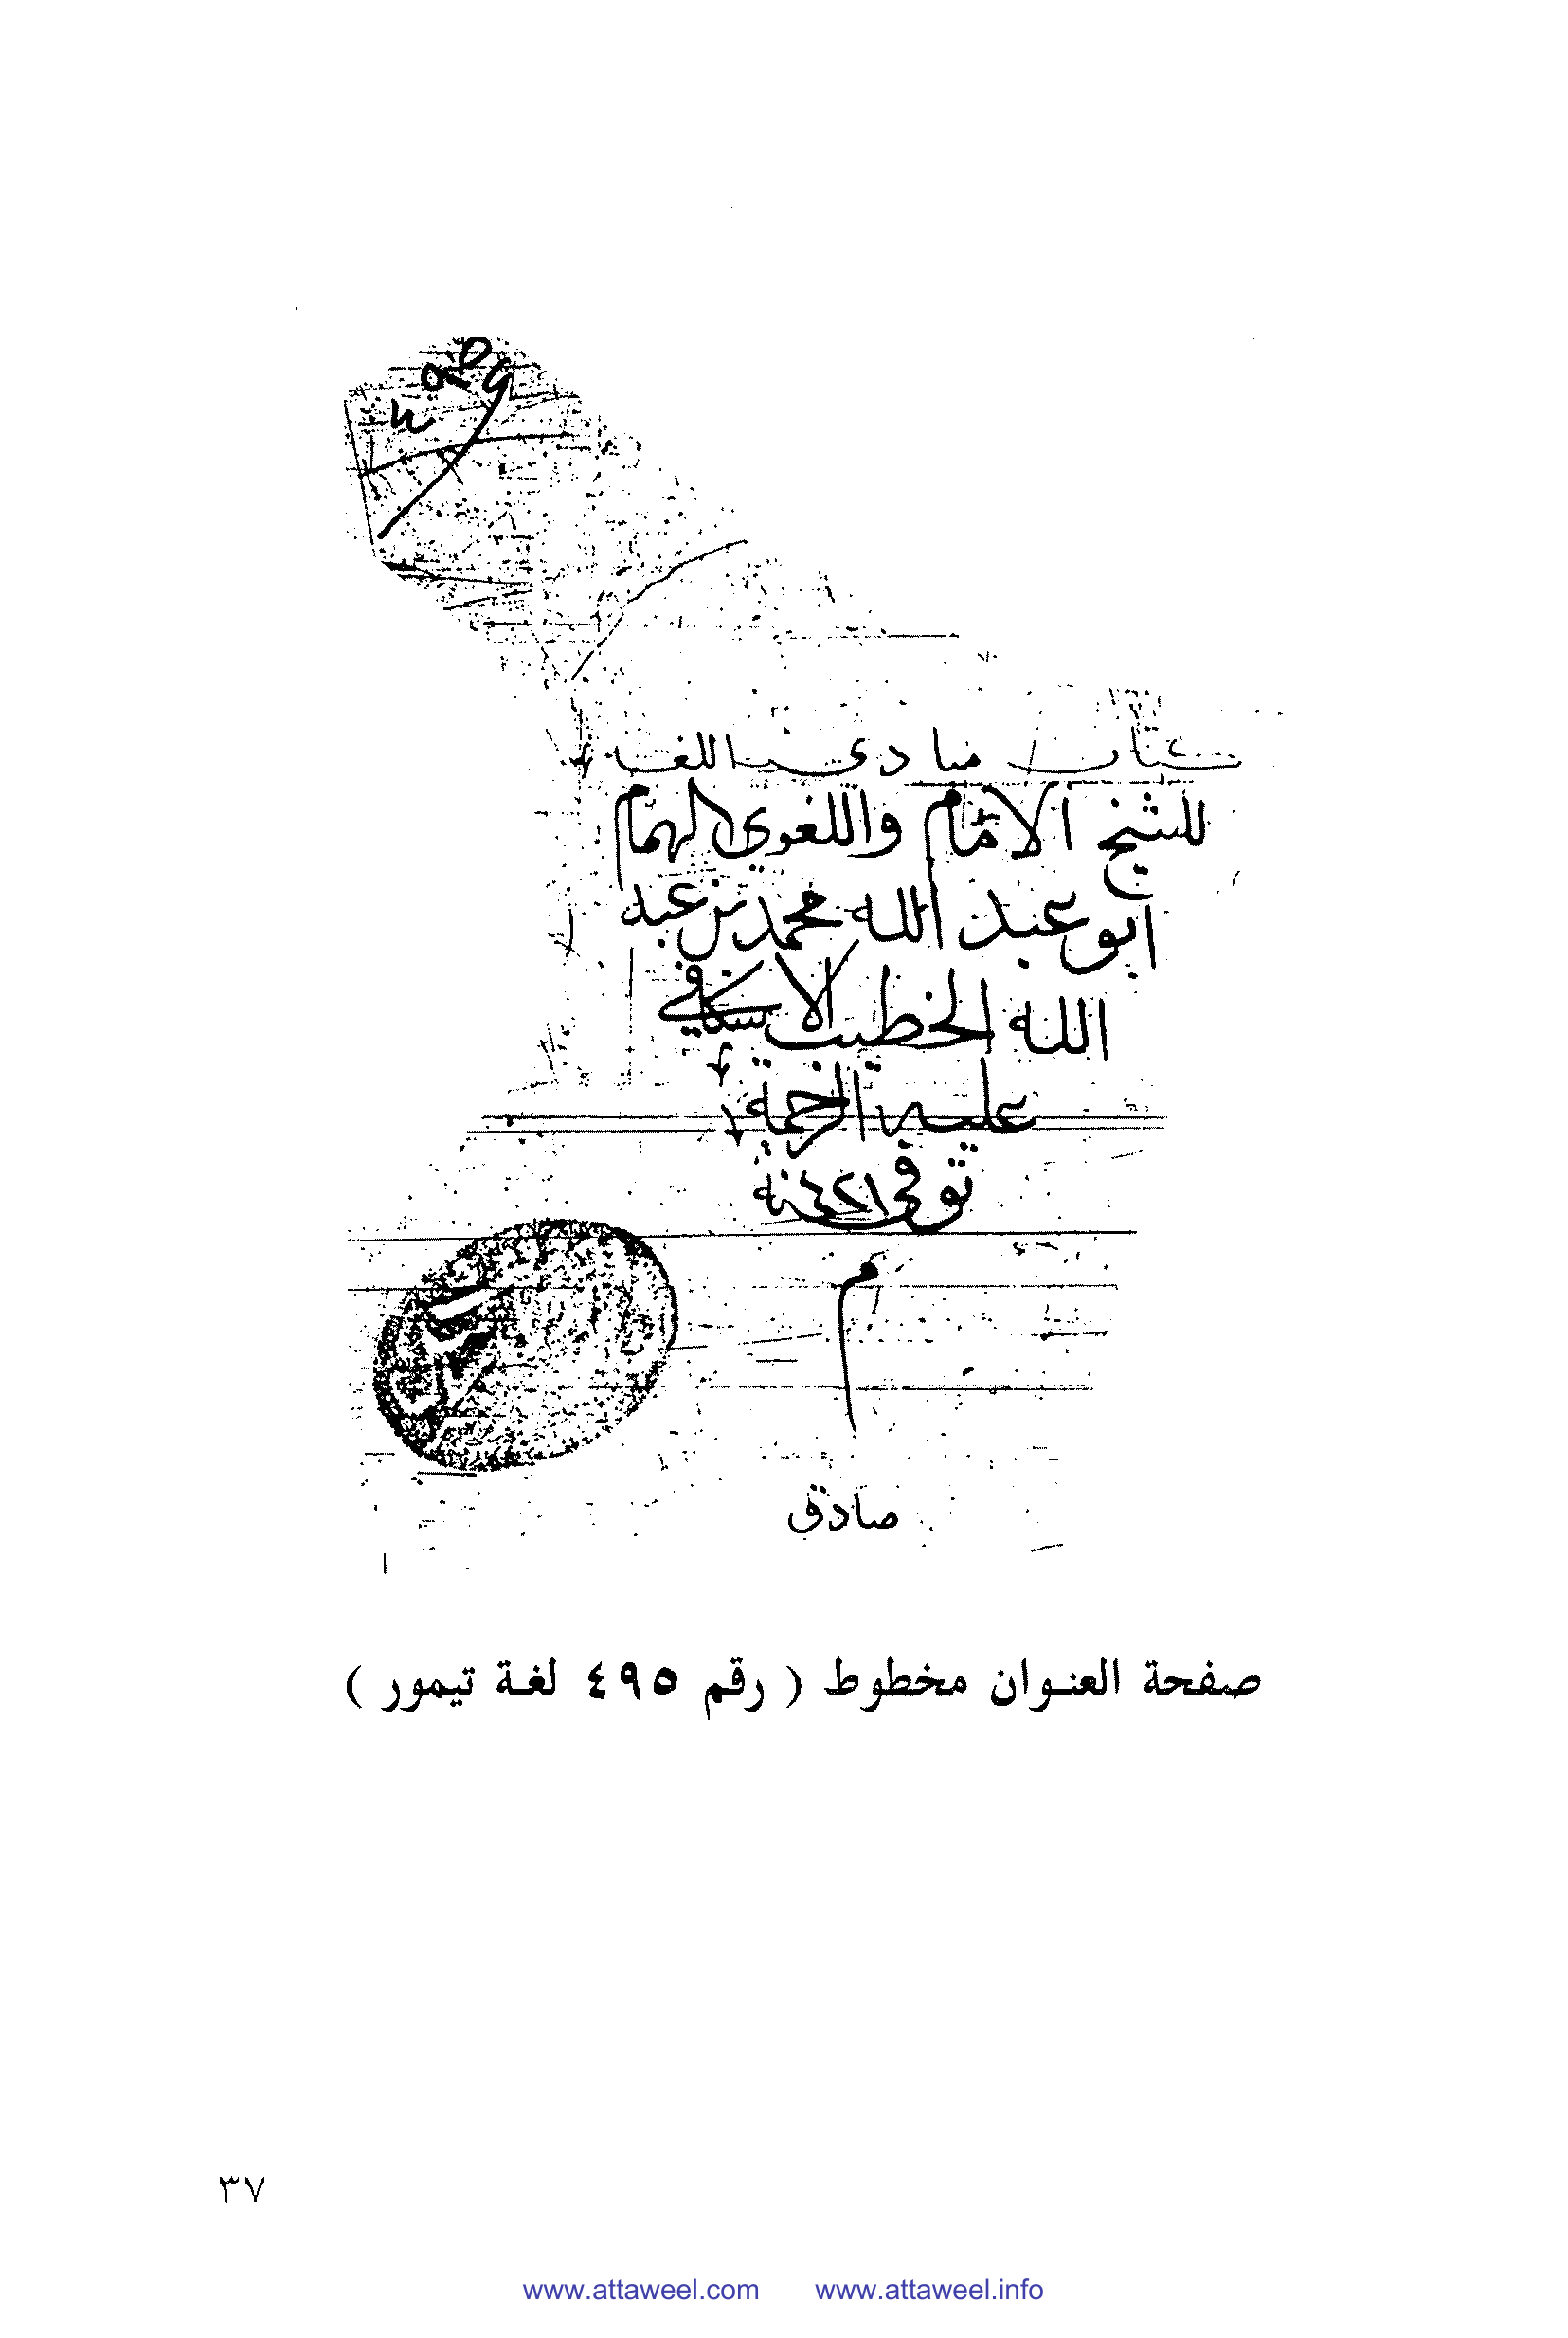 كتاب مبادئ اللغة
للشيخ الامام واللغوي الهمام
ابو عبد الله محمد بن عبد
الله الخطيب الاسكافي
عليه الرحمة
توفي ٤٢١ سنة
م
صادق
صفحة العنوان مخطوط ( رقم ٤٩٥ لغة تيمور )
٣٧
www.attaweel.com www.attaweel.info